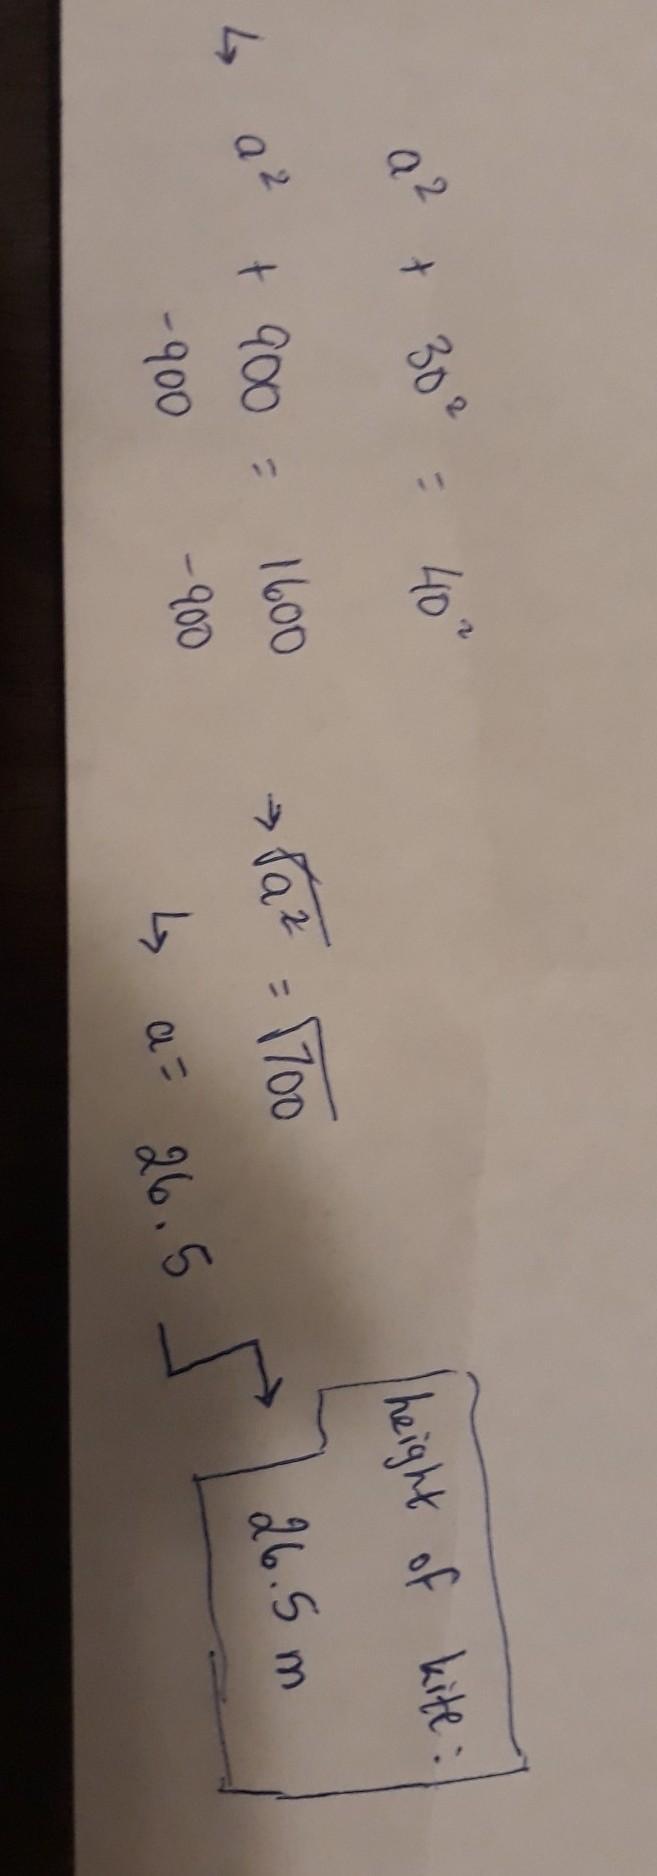 a² + 30² = 40²
↳ a² + 900 = 1600
-900 -900
→ √a² = √700
↳ a = 26.5
height of kite:
26.5 m